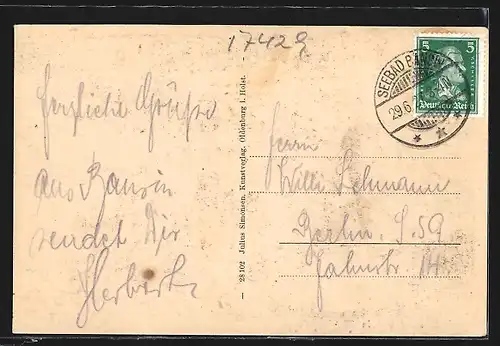 17429
Herzliche Grüße
aus Bansin
sendet Dir
Herbert
28102 Julius Simonsen, Kunstverlag, Oldenburg i. Holst.
SEEBAD BANSIN
29.6.
5 5
Deutsches Reich
Herrn
Willi Lehmann
Berlin S.59
Jahnstr 14